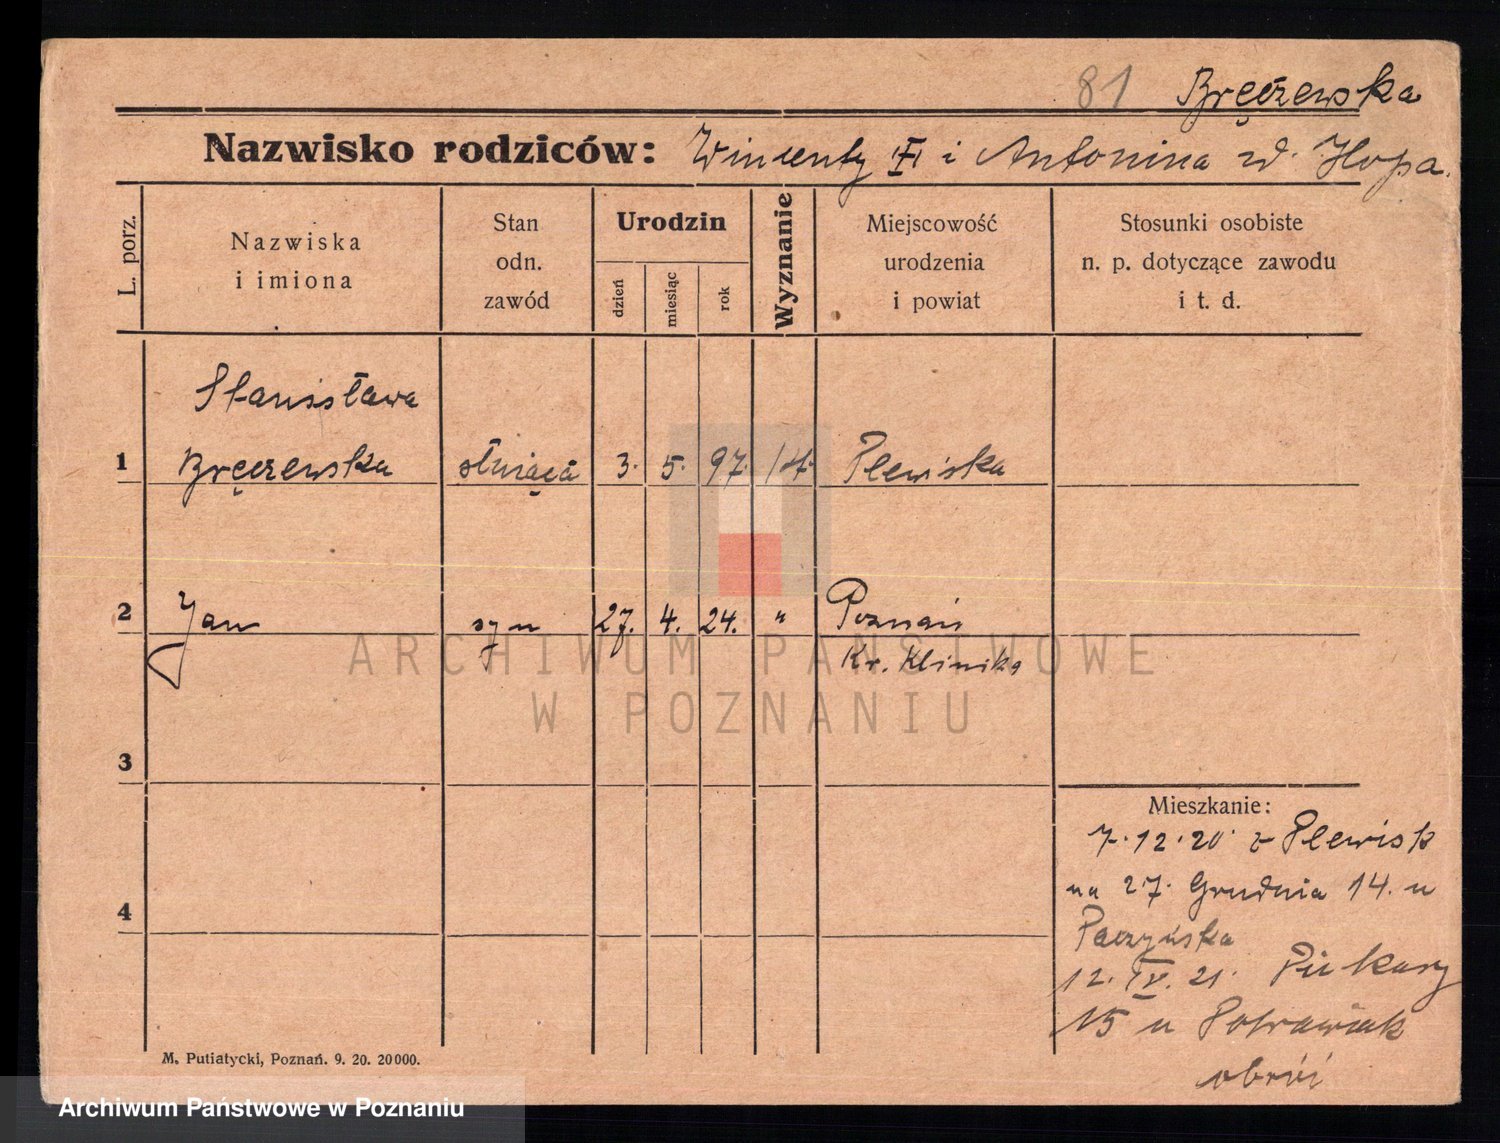 81 Bręczewska
Nazwisko rodziców: Wincenty i Antonina zd. Hopa.
L. porz.
Nazwiska
i imiona
Stan
odn.
zawód
Urodzin
dzień
miesiąc
rok
Wyznanie
Miejscowość
urodzenia
i powiat
Stosunki osobiste
n. p. dotyczące zawodu
i t. d.
Stanisława
1 Bręczewska służąca 3. 5. 97. Plewiska
2 Jan syn 27. 4. 24. " Poznań
Kr. Klinika
3
Mieszkanie:
7.12.20 z Plewisk
na 27. Grudnia 14. u
4
Paczyńska
12. IV. 21. Piekary
15 u Potrawiak
obróć
M. Putiatycki, Poznań. 9. 20. 20000.
ARCHIWUM PAŃSTWOWE
W POZNANIU
Archiwum Państwowe w Poznaniu